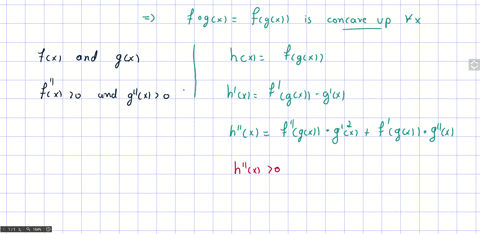 => f∘g(x) = f(g(x)) is concave up ∀x
f(x) and g(x)
f''(x) > 0 and g''(x) > 0 .
h(x) = f(g(x))
h'(x) = f'(g(x)) · g'(x)
h''(x) = f''(g(x)) · g'(x)² + f'(g(x)) · g''(x)
h''(x) > 0